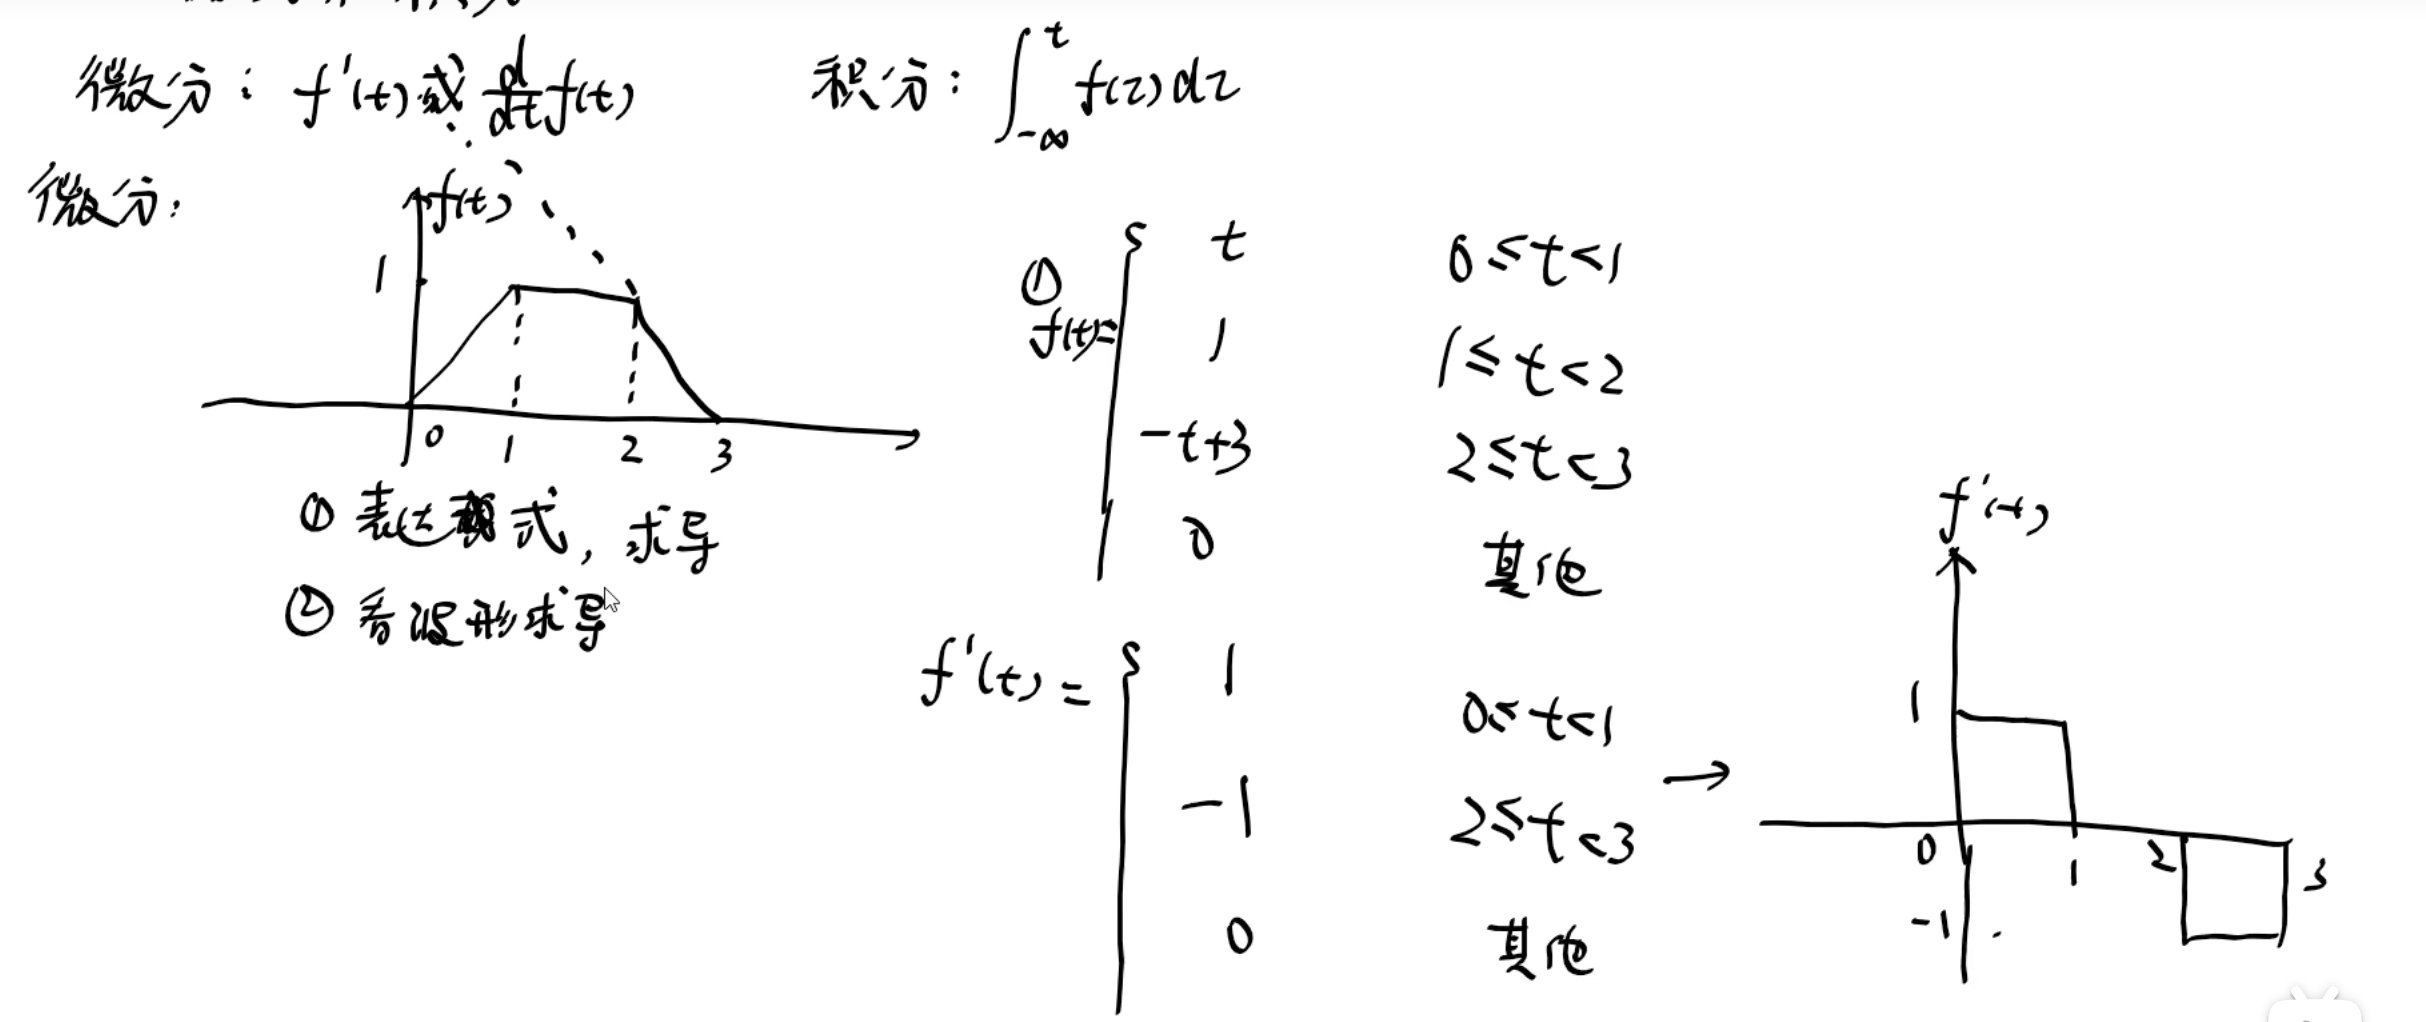 微分：f'(t)或 d/dt f(t) 积分：∫_{-∞}^{t} f(τ)dτ
微分：
f(t)
1
0 1 2 3
① 表达式，求导
② 看波形求导
①
f(t)= { t 0≤t<1
1 1≤t<2
-t+3 2≤t<3
0 其他
f'(t) = { 1 0≤t<1
-1 2≤t<3
0 其他
→
f'(t)
1
0 1 2 3
-1